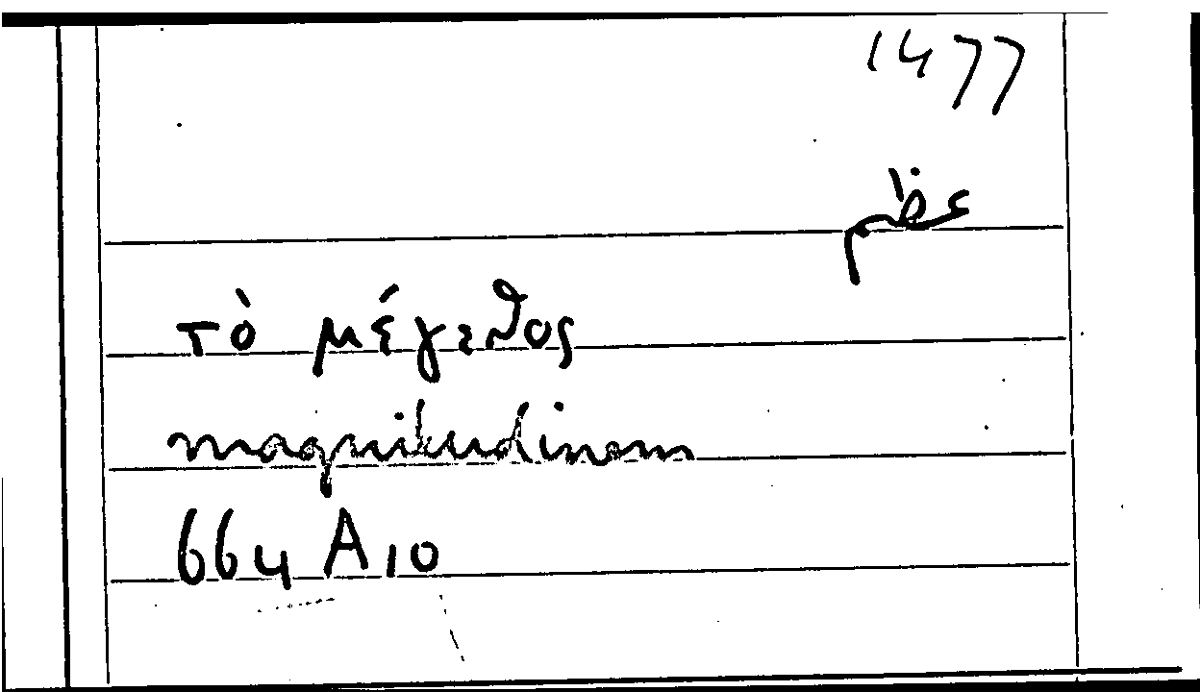 1477
τὸ μέγεθος
magnitudinem
664 A 10